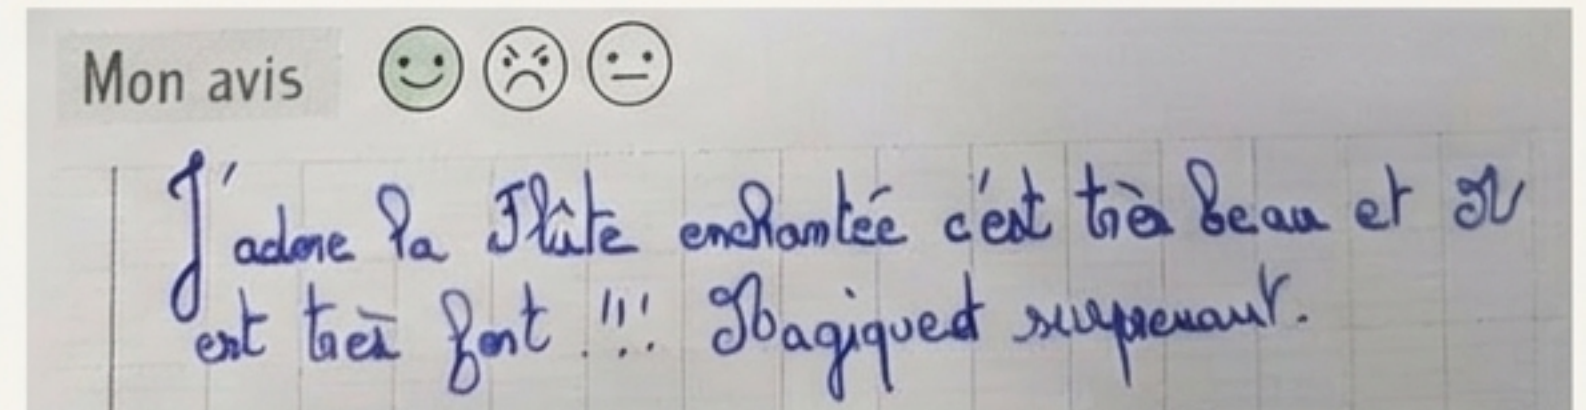 Mon avis
J'adore la Flûte enchantée c'est très beau et M
est très fort !!! Magique et surprenant.